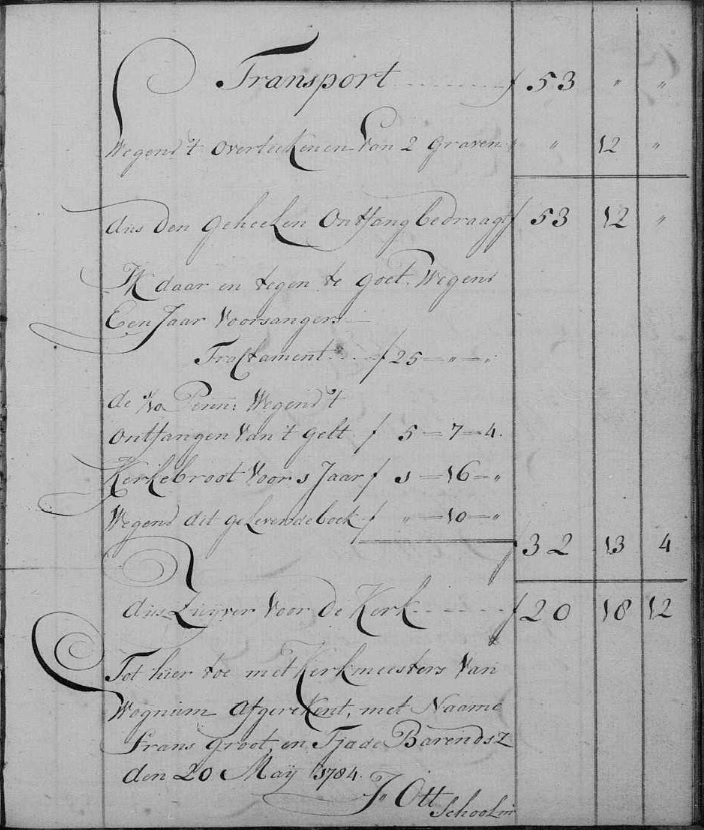 Transport ........ f 53 " "
Wegens 't overteekenen van 2 Graven f " 12 "
dus den geheelen Ontfang bedraagt f 53 12 "
Ik daar en tegen te goet Wegens
Een Jaar Voorsangers
Tractament .... f 25 — " — "
de 1/10 Penn: Wegens 't
ontfangen Van 't Gelt f 5 — 7 — 4.
Kerkebroot Voor 1 Jaar f 1 — 16 — "
Wegens dit geleverde boek f " — 10 — "
f 32 13 4
dus Zuyver Voor de Kerk ........ f 20 18 12
Tot hier toe met Kerkmeesters Van
Wognum Afgerekent, met Naame
Frans Groot, en Tjade Barendsz
den 20 Maÿ 1784.
J: Ott
Schoolmr